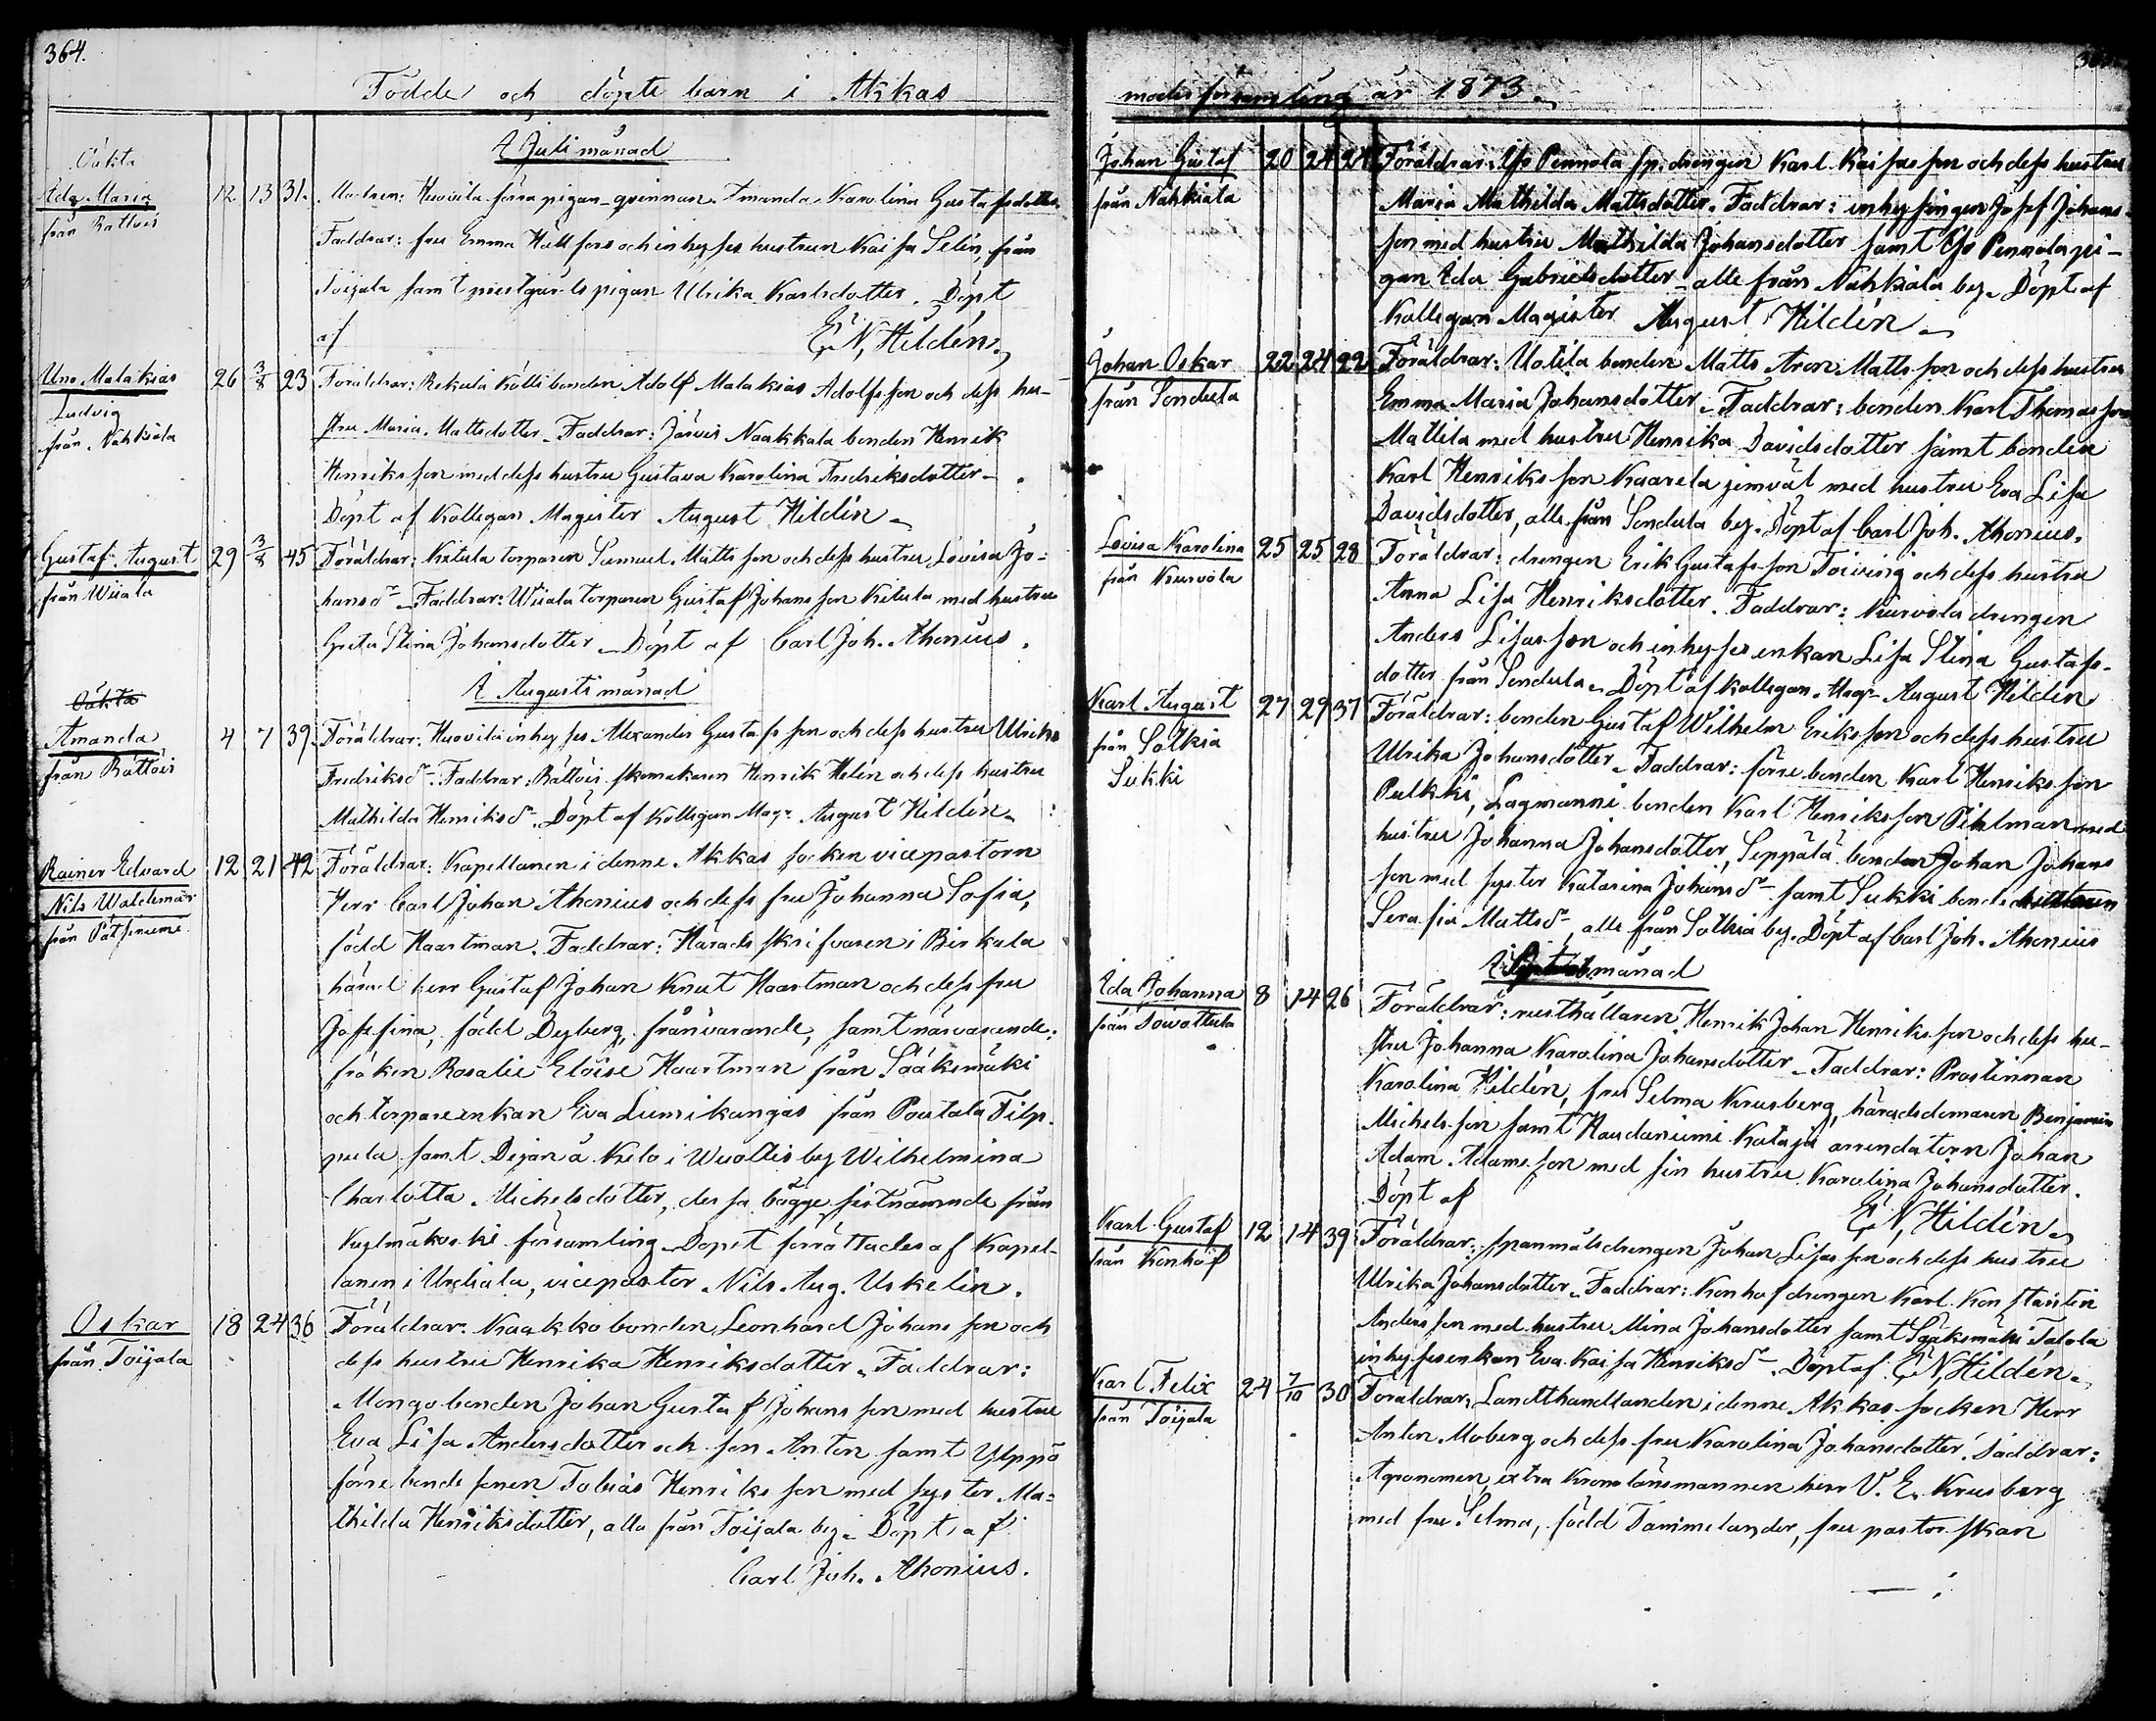 364.
Födde och döpte barn i Akkas
I Juli månad
Oäkta
Ida Maria
från Rattois
12 13 31.
Modren: Huovila förra pigan-qvinnan Amanda Karolina Gustafsdotter.
Faddrar: fru Emma Hällfors och inhyses hustrun Kaisa Selin från
Toijala samt prestgårds pigan Ulrika Karlsdotter. Döpt
af E. N. Hildén.
Uno Malakias
Ludvig
från Nahkiala
26 3/8 23
Föräldrar: Rekula Kölli bonden Adolf Malakias Adolfsson och dess hu-
stru Maria Mattsdotter. Faddrar: Järvis Naakkala bonden Henrik
Henriksson med dess hustru Gustava Karolina Fredriksdotter.
Döpt af Kollegan Magister August Hildén.
Gustaf August
från Wiiala
29 3/8 45
Föräldrar: Kitula torparen Samuel Mattsson och dess hustru Lovisa Jo-
hansdr. Faddrar: Wiiala torparen Gustaf Johansson Kitula med hustru
Greta Stina Johansdotter. Döpt af Carl Joh. Ahonius.
I Augusti månad
Oäkta
Amanda
från Rattois
4 7 39.
Föräldrar: Huovila inhyses Alexander Gustafsson och dess hustru Ulrika
Fredriksdr. Faddrar: Rattois skomakaren Henrik Helén och dess hustru
Mathilda Henriksdr. Döpt af Kollegan Magr August Hildén.
Rainer Edvard
Nils Waldemar
från Pätsniemi
12 21 42
Föräldrar: Kapellanen i denne Akkas socken vicepastorn
Herr Carl Johan Ahonius och dess fru Johanna Sofia,
född Haartman. Faddrar: Härads skrifvaren i Birkala
härad herr Gustaf Johan Knut Haartman och dess fru
Josefina, född Dyberg, frånvarande, samt närvarande:
fröken Rosalie Eloise Haartman från Sääksmäki
och torpareenkan Eva Lumikangas från Poutala Filp-
pula samt Dejan å Kelo i Wuollis by Wilhelmina
Charlotta Michelsdotter, dessa bägge sistnämnde från
Kuylmäkoski församling. Dopet förrättades af Kapel-
lanen i Urdiala, vicepastor Nils Aug. Uskelin.
Oskar
från Toijala
18 24 36
Föräldrar: Kaakko bonden Leonhard Johansson och
dess hustru Henrika Henriksdotter. Faddrar:
Mongo bonden Johan Gustaf Johansson med hustru
Eva Lisa Andersdotter och son Anton samt Ylppö
förre bonde sonen Tobias Henriksson med syster Ma-
thilda Henriksdotter, alla från Toijala by. Döpt af
Carl Joh. Ahonius.
moderförsamling år 1873.
Johan Gustaf
från Nahkiala
20 24 24
Föräldrar: Yso Pennola sp. drengen Karl Kaisasson och dess hustru
Maria Mathilda Mattsdotter. Faddrar: inhysingen Josef Johans-
son med hustru Mathilda Johansdotter samt Yso Pennola pi-
gan Ida Gabrielsdotter alle från Nahkiala by. Döpt af
Kollegan Magister August Hildén.
Johan Oskar
från Sondula
22 24 22
Föräldrar: Uotila bonden Matts Aron Mattsson och dess hustru
Emma Maria Johansdotter. Faddrar: bonden Karl Thomasson
Mattila med hustru Henrika Davidsdotter samt bonden
Karl Henriksson Kaarela jemväl med hustru Eva Lisa
Davidsdotter, alle från Sondula by. Döpt af Carl Joh. Ahonius.
Lovisa Karolina
från Kurvola
25 25 28
Föräldrar: drengen Erik Gustafsson Toiving och dess hustru
Anna Lisa Henriksdotter. Faddrar: Kurvola drengen
Anders Lisasson och inhyses enkan Lisa Stina Gustafs-
dotter från Sondula. Döpt af kollegan Magr August Hildén
Karl August
från Sotkia
Sukki
27 29 37
Föräldrar: bonden Gustaf Wilhelm Eriksson och dess hustru
Ulrika Johansdotter. Faddrar: förre bonden Karl Henriksson
Pulkki, Lagmanni bonden Karl Henriksson Pihlman med
hustru Johanna Johansdotter, Seppälä bonden Johan Johans
son med syster Katarina Johansdr samt Sukki bondehustrun
Serafia Mattsdr, alle från Sotkia by. Döpt af Carl Joh. Ahonius
I Septeb. månad
Ida Johanna
från Sowottula
8 14 26
Föräldrar: rusthållaren Henrik Johan Henriksson och dess hu-
stru Johanna Karolina Johansdotter. Faddrar: Prostinnan
Karolina Hildén, fru Selma Krusberg, häradsdomaren Benjamin
Michelsson samt Haudaniemi Kataja arrendatorn Johan
Adam Adamsson med sin hustru Karolina Johansdotter.
Döpt af E. N. Hildén.
Karl Gustaf
från Konhof
12 14 39
Föräldrar: spanmålsdrengen Johan Lisasson och dess hustru
Ulrika Johansdotter. Faddrar: Konhof drengen Karl Konstantin
Andersson med hustru Mina Johansdotter samt Sääksmäki Talola
inhysesenkan Eva Kaisa Henriksdr. Döpt af E. N. Hildén.
Karl Felix
från Toijala
24 7/10 30
Föräldrar: Landthandlanden i denne Akkas socken Herr
Anton Moberg och dess fru Karolina Johansdotter. Faddrar:
Agronomen, extra Kronolänsmannen herr V. E. Krusberg
med fru Selma, född Tammelander, fru pastorskan